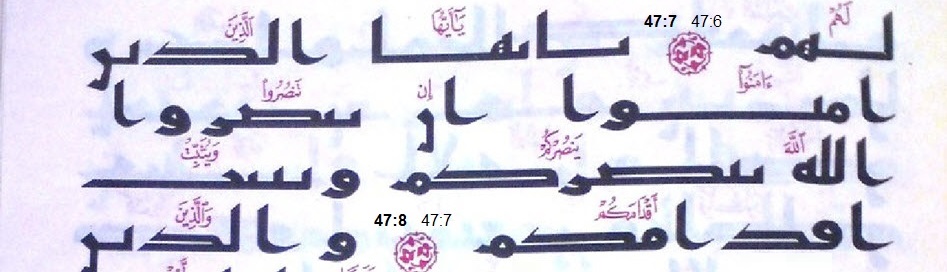 لَهُمْ 47:6 47:7 يَٰٓأَيُّهَا ٱلَّذِينَ
ءَامَنُوٓا۟ إِن تَنصُرُوا۟
ٱللَّهَ يَنصُرْكُمْ وَيُثَبِّتْ
أَقْدَامَكُمْ 47:7 47:8 وَٱلَّذِينَ